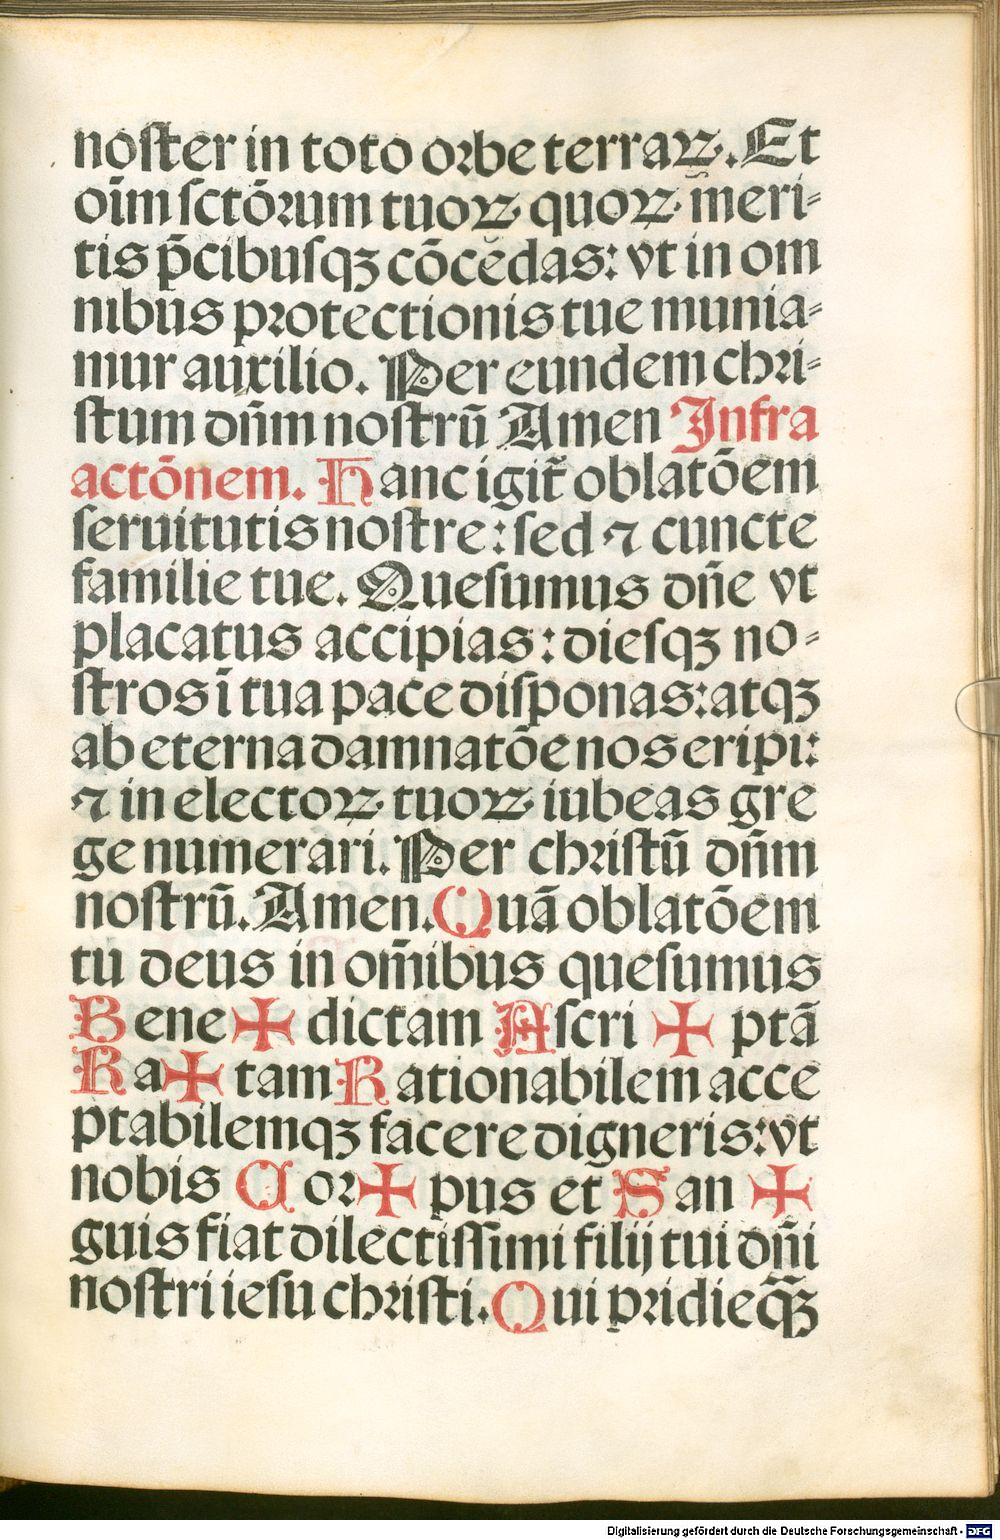 noſter in toto orbe terraꝝ. Et
oīm ſctōrum tuoꝝ quoꝝ meri⸗
tis p̄cibuſqꝫ cōcēdas: vt in om
nibus protectionis tue munia⸗
mur auxilio. Per eundem chri⸗
ſtum dn̄m noſtrū Amen Infra
actōnem. Hanc igit̄ oblatōem
ſeruitutis noſtre: ſed ⁊ cuncte
familie tue. Queſumus dn̄e vt
placatus accipias: dieſqꝫ no⸗
ſtros ī tua pace diſponas: atqꝫ
ab eterna damnatōe nos eripi:
⁊ in electoꝝ tuoꝝ iubeas gre
ge numerari. Per chriſtū dn̄m
noſtrū. Amen. Quā oblatōem
tu deus in om̄ibus queſumus
Bene ✠ dictam Aſcri ✠ ptā
Ra ✠ tam Rationabilem acce
ptabilemqꝫ facere digneris: vt
nobis Cor ✠ pus et San ✠
guis fiat dilectiſſimi filij tui dn̄i
noſtri ieſu chriſti. Qui pridie qꝫ̄
Digitalisierung gefördert durch die Deutsche Forschungsgemeinschaft - DFG